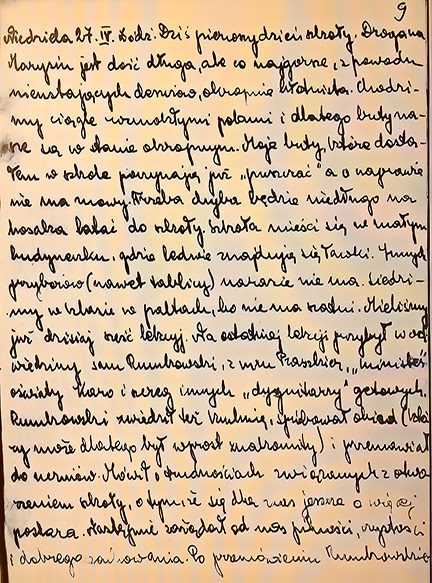 9
Niedziela 27. IV. Łódź. Dziś pierwszy dzień szkoły. Droga na
Marysin jest dość długa, ale co najgorsze, z powodu
nieustających deszczów, okropnie błotnista. Chodzi-
my ciągle rozmokłymi polami i dlatego buty na-
sze są w stanie okropnym. Moje buty, które dosta-
łem w szkole poczynają już „puszczać" a o naprawie
nie ma mowy. Trzeba chyba będzie niedługo na
bosaka latać do szkoły. Szkoła mieści się w małym
budyneczku, gdzie ledwie znajdują się ławki. Innych
przyborów (nawet tablicy) narazie nie ma. Siedzi-
my w klasie w paltach, bo nie ma szatni. Mieliśmy
już dzisiaj sześć lekcyj. Na ostatniej lekcji przybył w od-
wiedziny sam Rumkowski, z nim Praszkier, „minister"
oświaty Karo i szereg innych „dygnitarzy" gettowych.
Rumkowski zwiedził też kuchnię, spróbował obiad (któ-
ry może dlatego był wprost znakomity) i przemawiał
do uczniów. Mówił o trudnościach związanych z otwo-
rzeniem szkoły, o tym, że się dla nas jeszcze o więcej
postara. Następnie zażądał od nas pilności, czystości
i dobrego zachowania. Po przemówieniu Rumkowskie-